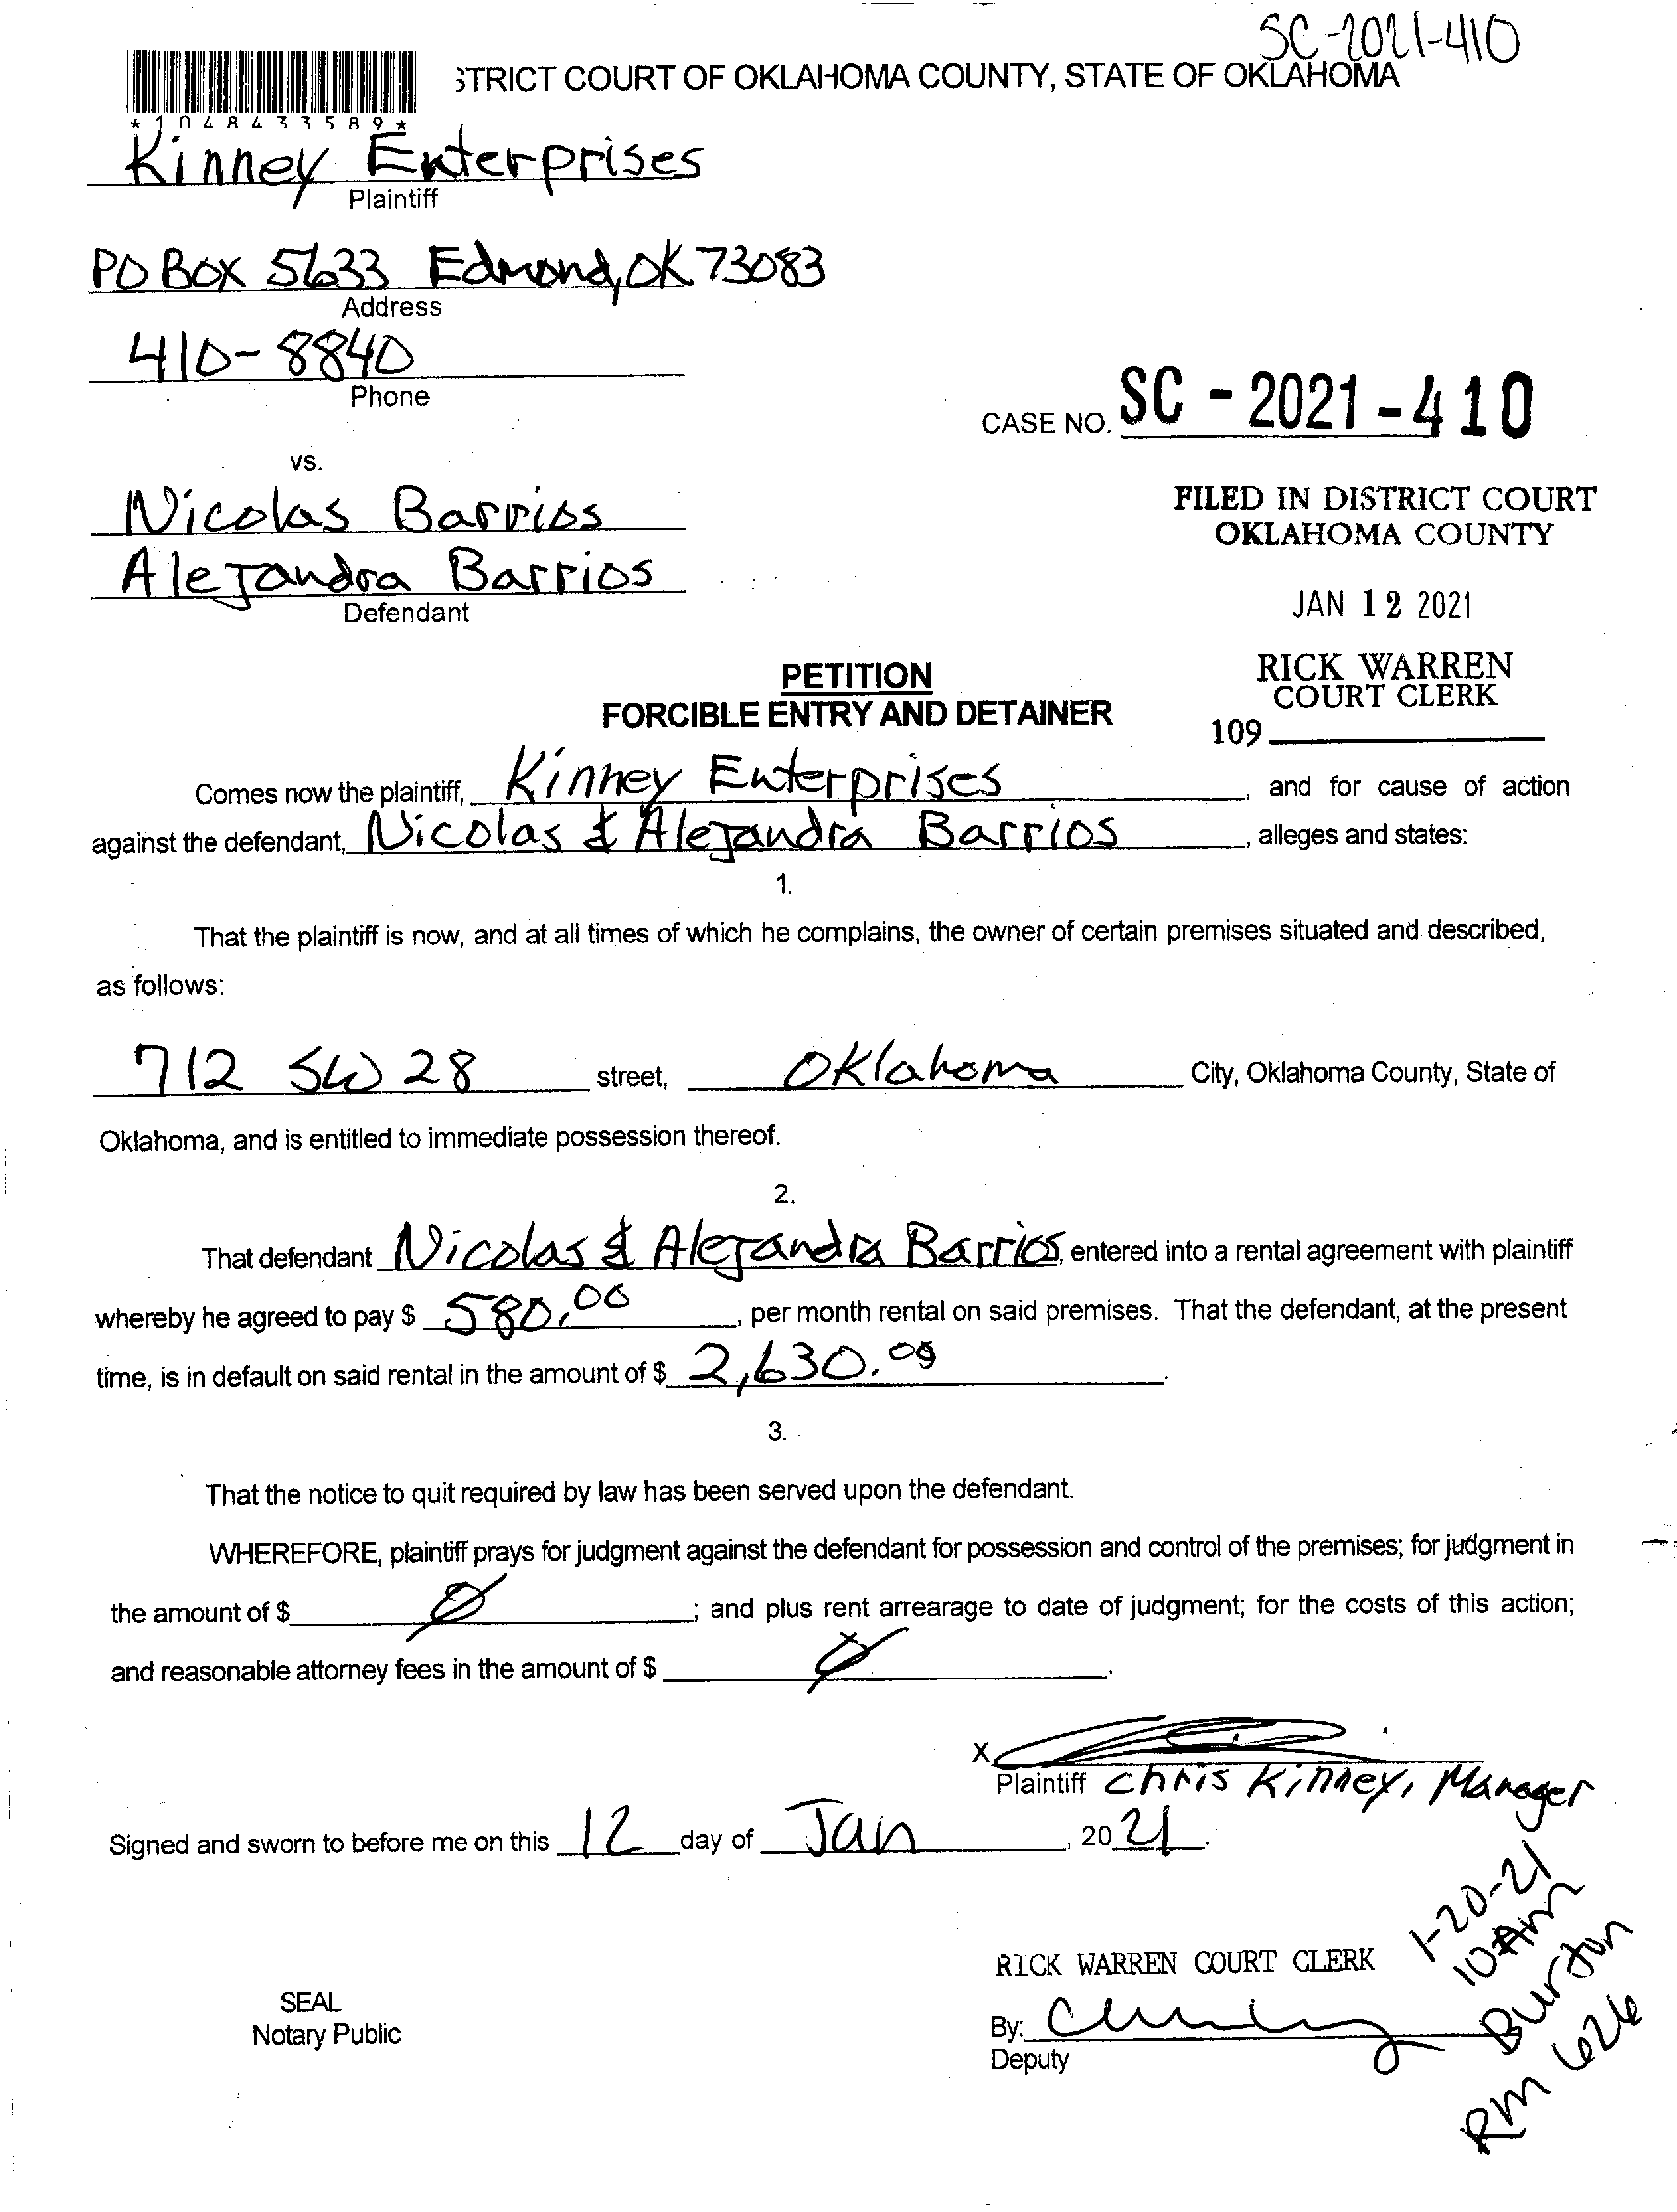 SC-2021-410
STRICT COURT OF OKLAHOMA COUNTY, STATE OF OKLAHOMA
*1048433589*
Kinney Enterprises
Plaintiff
PO BOX 5633 Edmond, OK 73083
Address
410-8840
Phone
CASE NO. SC - 2021 - 410
vs.
Nicolas Barrios
Alejandra Barrios
Defendant
FILED IN DISTRICT COURT
OKLAHOMA COUNTY
JAN 12 2021
RICK WARREN
COURT CLERK
109
PETITION
FORCIBLE ENTRY AND DETAINER
Comes now the plaintiff, Kinney Enterprises, and for cause of action
against the defendant, Nicolas & Alejandra Barrios, alleges and states:
1.
That the plaintiff is now, and at all times of which he complains, the owner of certain premises situated and described,
as follows:
712 SW 28 street, Oklahoma City, Oklahoma County, State of
Oklahoma, and is entitled to immediate possession thereof.
2.
That defendant Nicolas & Alejandra Barrios, entered into a rental agreement with plaintiff
whereby he agreed to pay $ 580.00, per month rental on said premises. That the defendant, at the present
time, is in default on said rental in the amount of $ 2,630.00.
3.
That the notice to quit required by law has been served upon the defendant.
WHEREFORE, plaintiff prays for judgment against the defendant for possession and control of the premises; for judgment in
the amount of $ Ø; and plus rent arrearage to date of judgment; for the costs of this action;
and reasonable attorney fees in the amount of $ Ø.
X
Plaintiff Chris Kinney, Manager
Signed and sworn to before me on this 12 day of Jan, 2021.
1-20-21
10 AM
Burton
RM 626
RICK WARREN COURT CLERK
SEAL
Notary Public
By:
Deputy